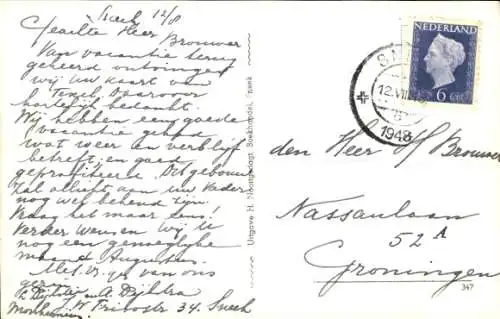 Sneek 12/8
Geachte Heer Brouwer
Van vacantie terug
gekeerd ontvingen
wij Uw kaart van
Texel, daarvoor
hartelijk bedankt.
Wij hebben een goede
vacantie gehad
wat weer en verblijf
betreft, en goed
geprofiteerd. Dit gebouw
zal allicht aan uw Vader
nog wel bekend zijn.
Vraag het maar eens!
Verder wensen wij U
nog een genoegelyke
maand Augustus.
Met vr. gr. van ons
gezin
A. Dijkstra
34. Sneek
Uitgave H. Boekhandel, Sneek
NEDERLAND
6 CENT
12.VIII
1948
den Heer H Brouwer
Nassaulaan
52 A
Groningen
347